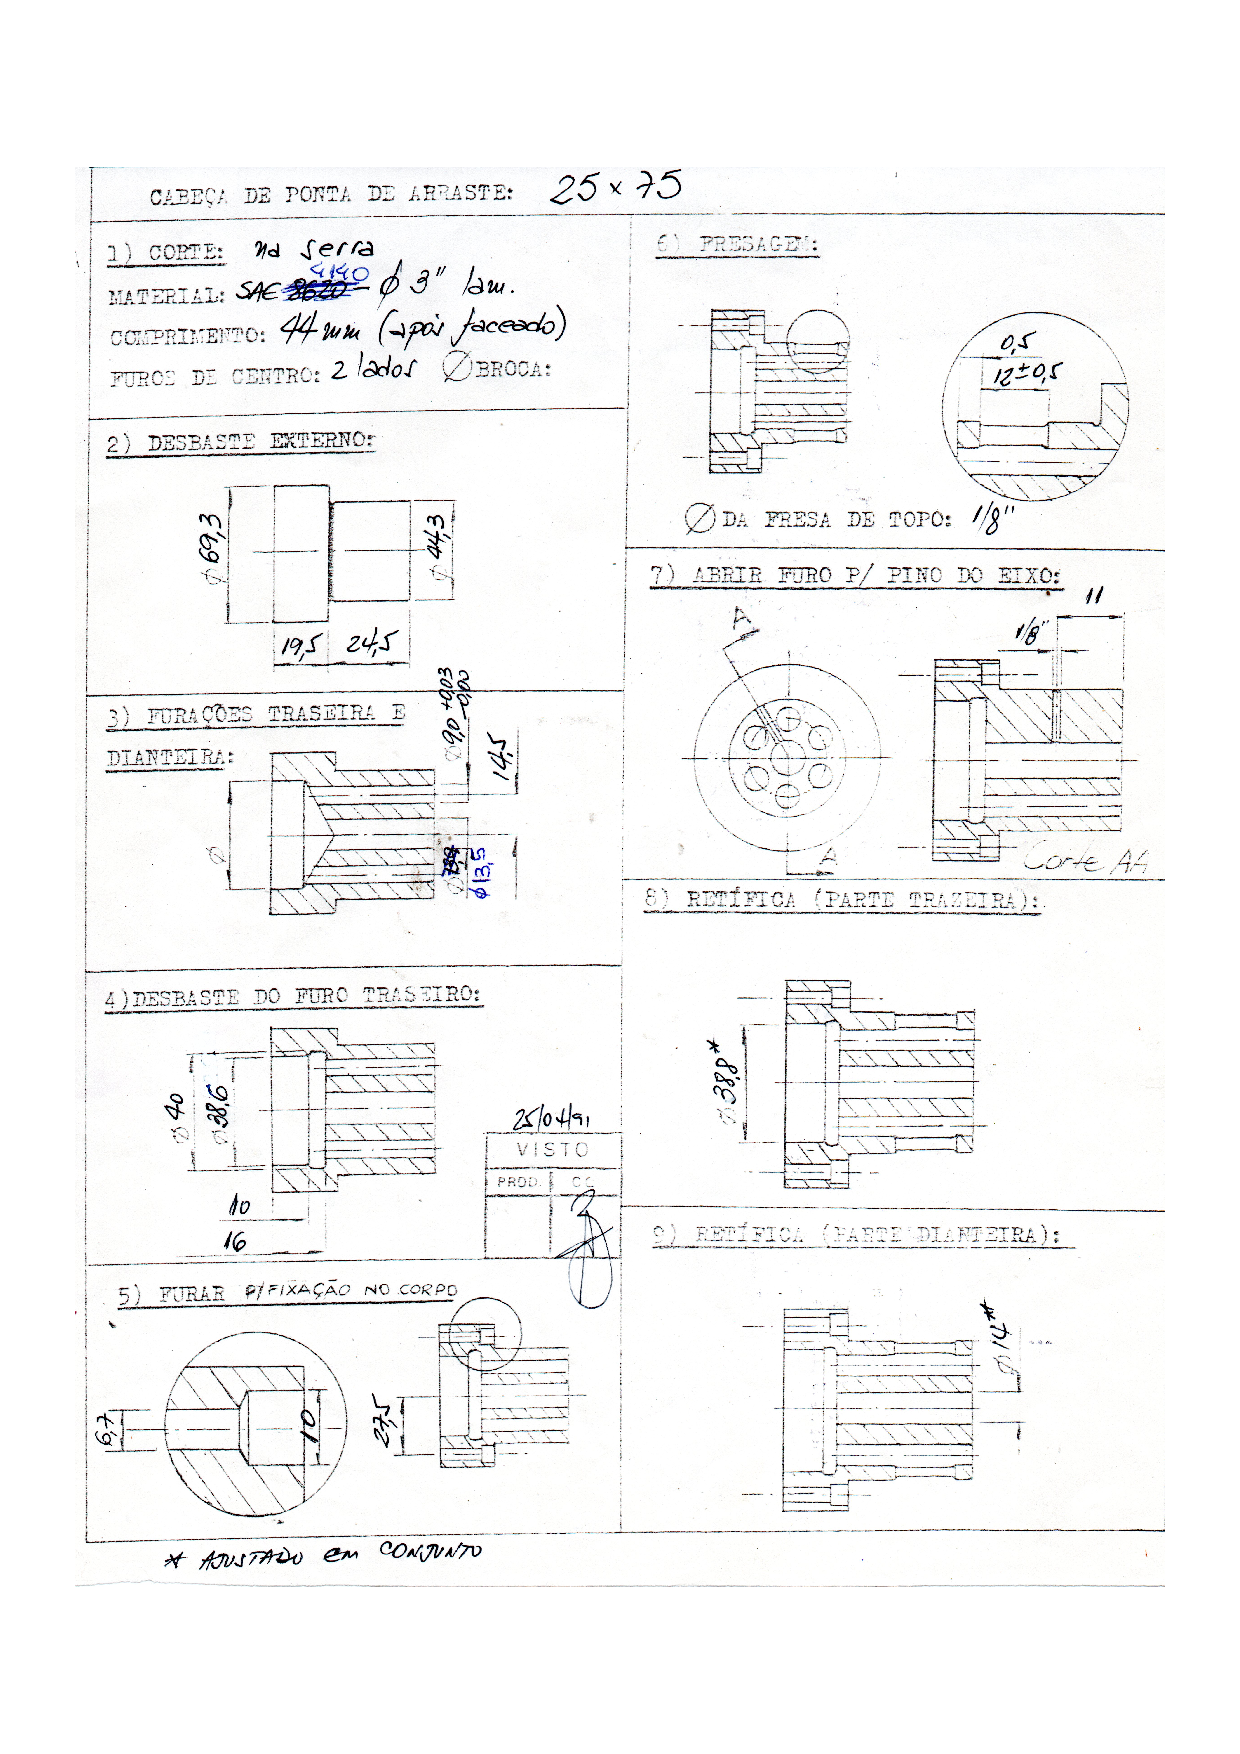 CABEÇA DE PONTA DE ARRASTE: 25 x 75
1) CORTE: na serra
MATERIAL: SAE 8620 4140 - Ø 3" lam.
COMPRIMENTO: 44 mm (após faceado)
FUROS DE CENTRO: 2 lados Ø BROCA:
2) DESBASTE EXTERNO:
Ø 69,3
Ø 44,3
19,5
24,5
3) FURAÇÕES TRASEIRA E
DIANTEIRA:
Ø 9,0 +0,03 -0,00
14,5
Ø
Ø 13,5
4) DESBASTE DO FURO TRASEIRO:
Ø 40
Ø 38,6
10
16
25/04/91
VISTO
PROD.
5) FURAR P/ FIXAÇÃO NO CORPO
6,7
10
27,5
6) FRESAGEM:
0,5
12 ± 0,5
Ø DA FRESA DE TOPO: 1/8"
7) ABRIR FURO P/ PINO DO EIXO:
A
A
11
1/8"
Corte AA
8) RETÍFICA (PARTE TRAZEIRA):
Ø 38,8*
9) RETÍFICA (PARTE DIANTEIRA):
Ø 14**
* AJUSTADO EM CONJUNTO